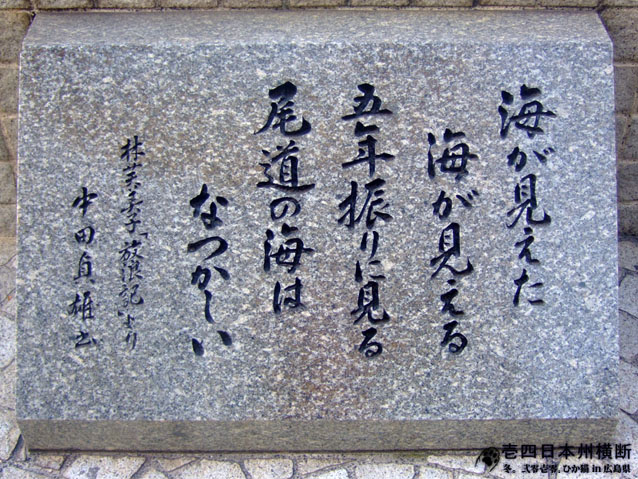 海が見えた
海が見える
五年振りに見る
尾道の海は
なつかしい
林芙美子「放浪記」より
中田貞雄書
壱四日本州横断
冬。弐零壱零、ひか猫 in 広島県